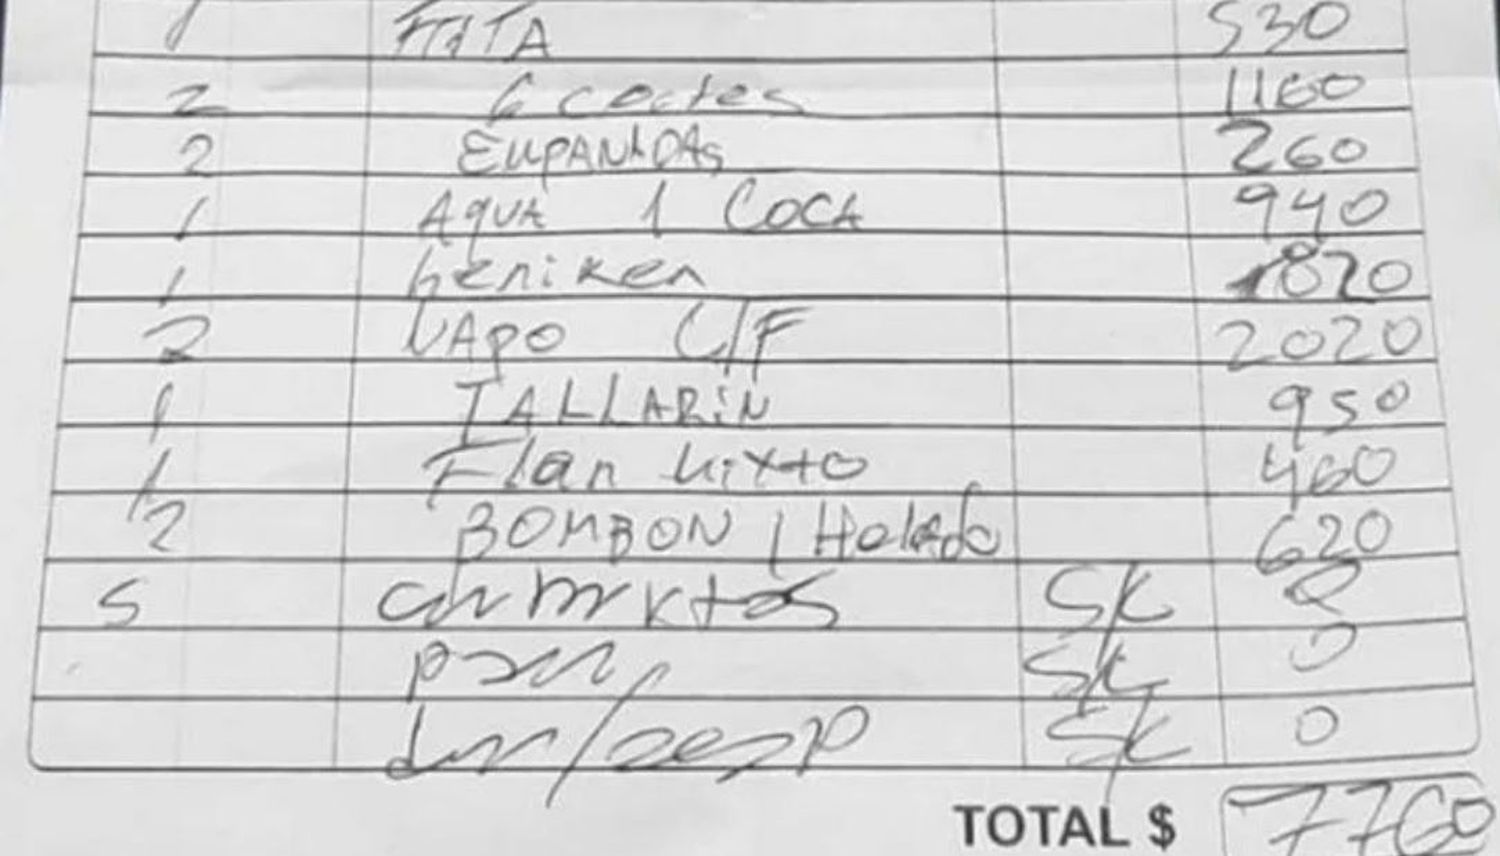 1 FAITA 530
2 G cortes 1160
2 EMPANADAS 260
1 Aqua 1 Coca 940
1 heniken 820
2 VApo C/F 2020
1 TALLARIN 950
1 Flan Mixto 460
2 BOMBON 1 Helado 620
5 S/C 0
S/C 0
S/C 0
TOTAL $ 7760